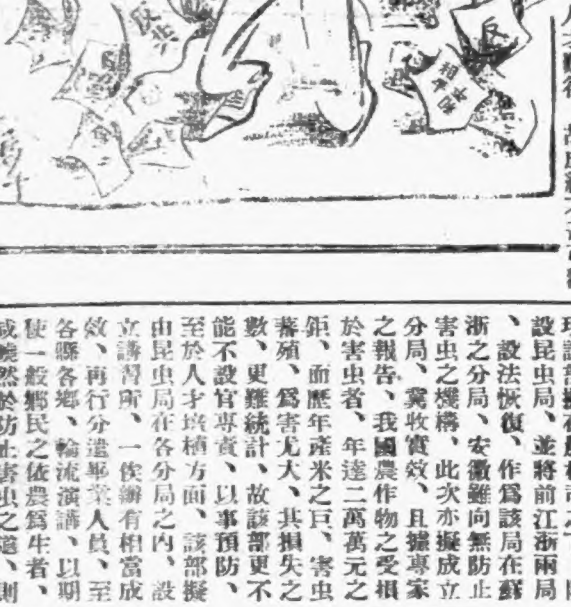 反共
反
設昆虫局、並將前江浙兩局
、設法恢復、作爲該局在蘇
浙之分局、安徽雖向無防止
害虫之機構、此次亦擬成立
分局、冀收實效、且據專家
之報告、我國農作物之受損
於害虫者、年達二萬萬元之
鉅、而歷年產米之巨、害虫
蕃殖、爲害尤大、其損失之
數、更難統計、故該部更不
能不設官專責、以事預防、
至於人才培植方面、該部擬
由昆虫局在各分局之內、設
立講習所、一俟辦有相當成
效、再行分遣畢業人員、至
各縣各鄉、輪流演講、以期
使一般鄉民之依農爲生者、
咸曉然於防止害虫之道、則